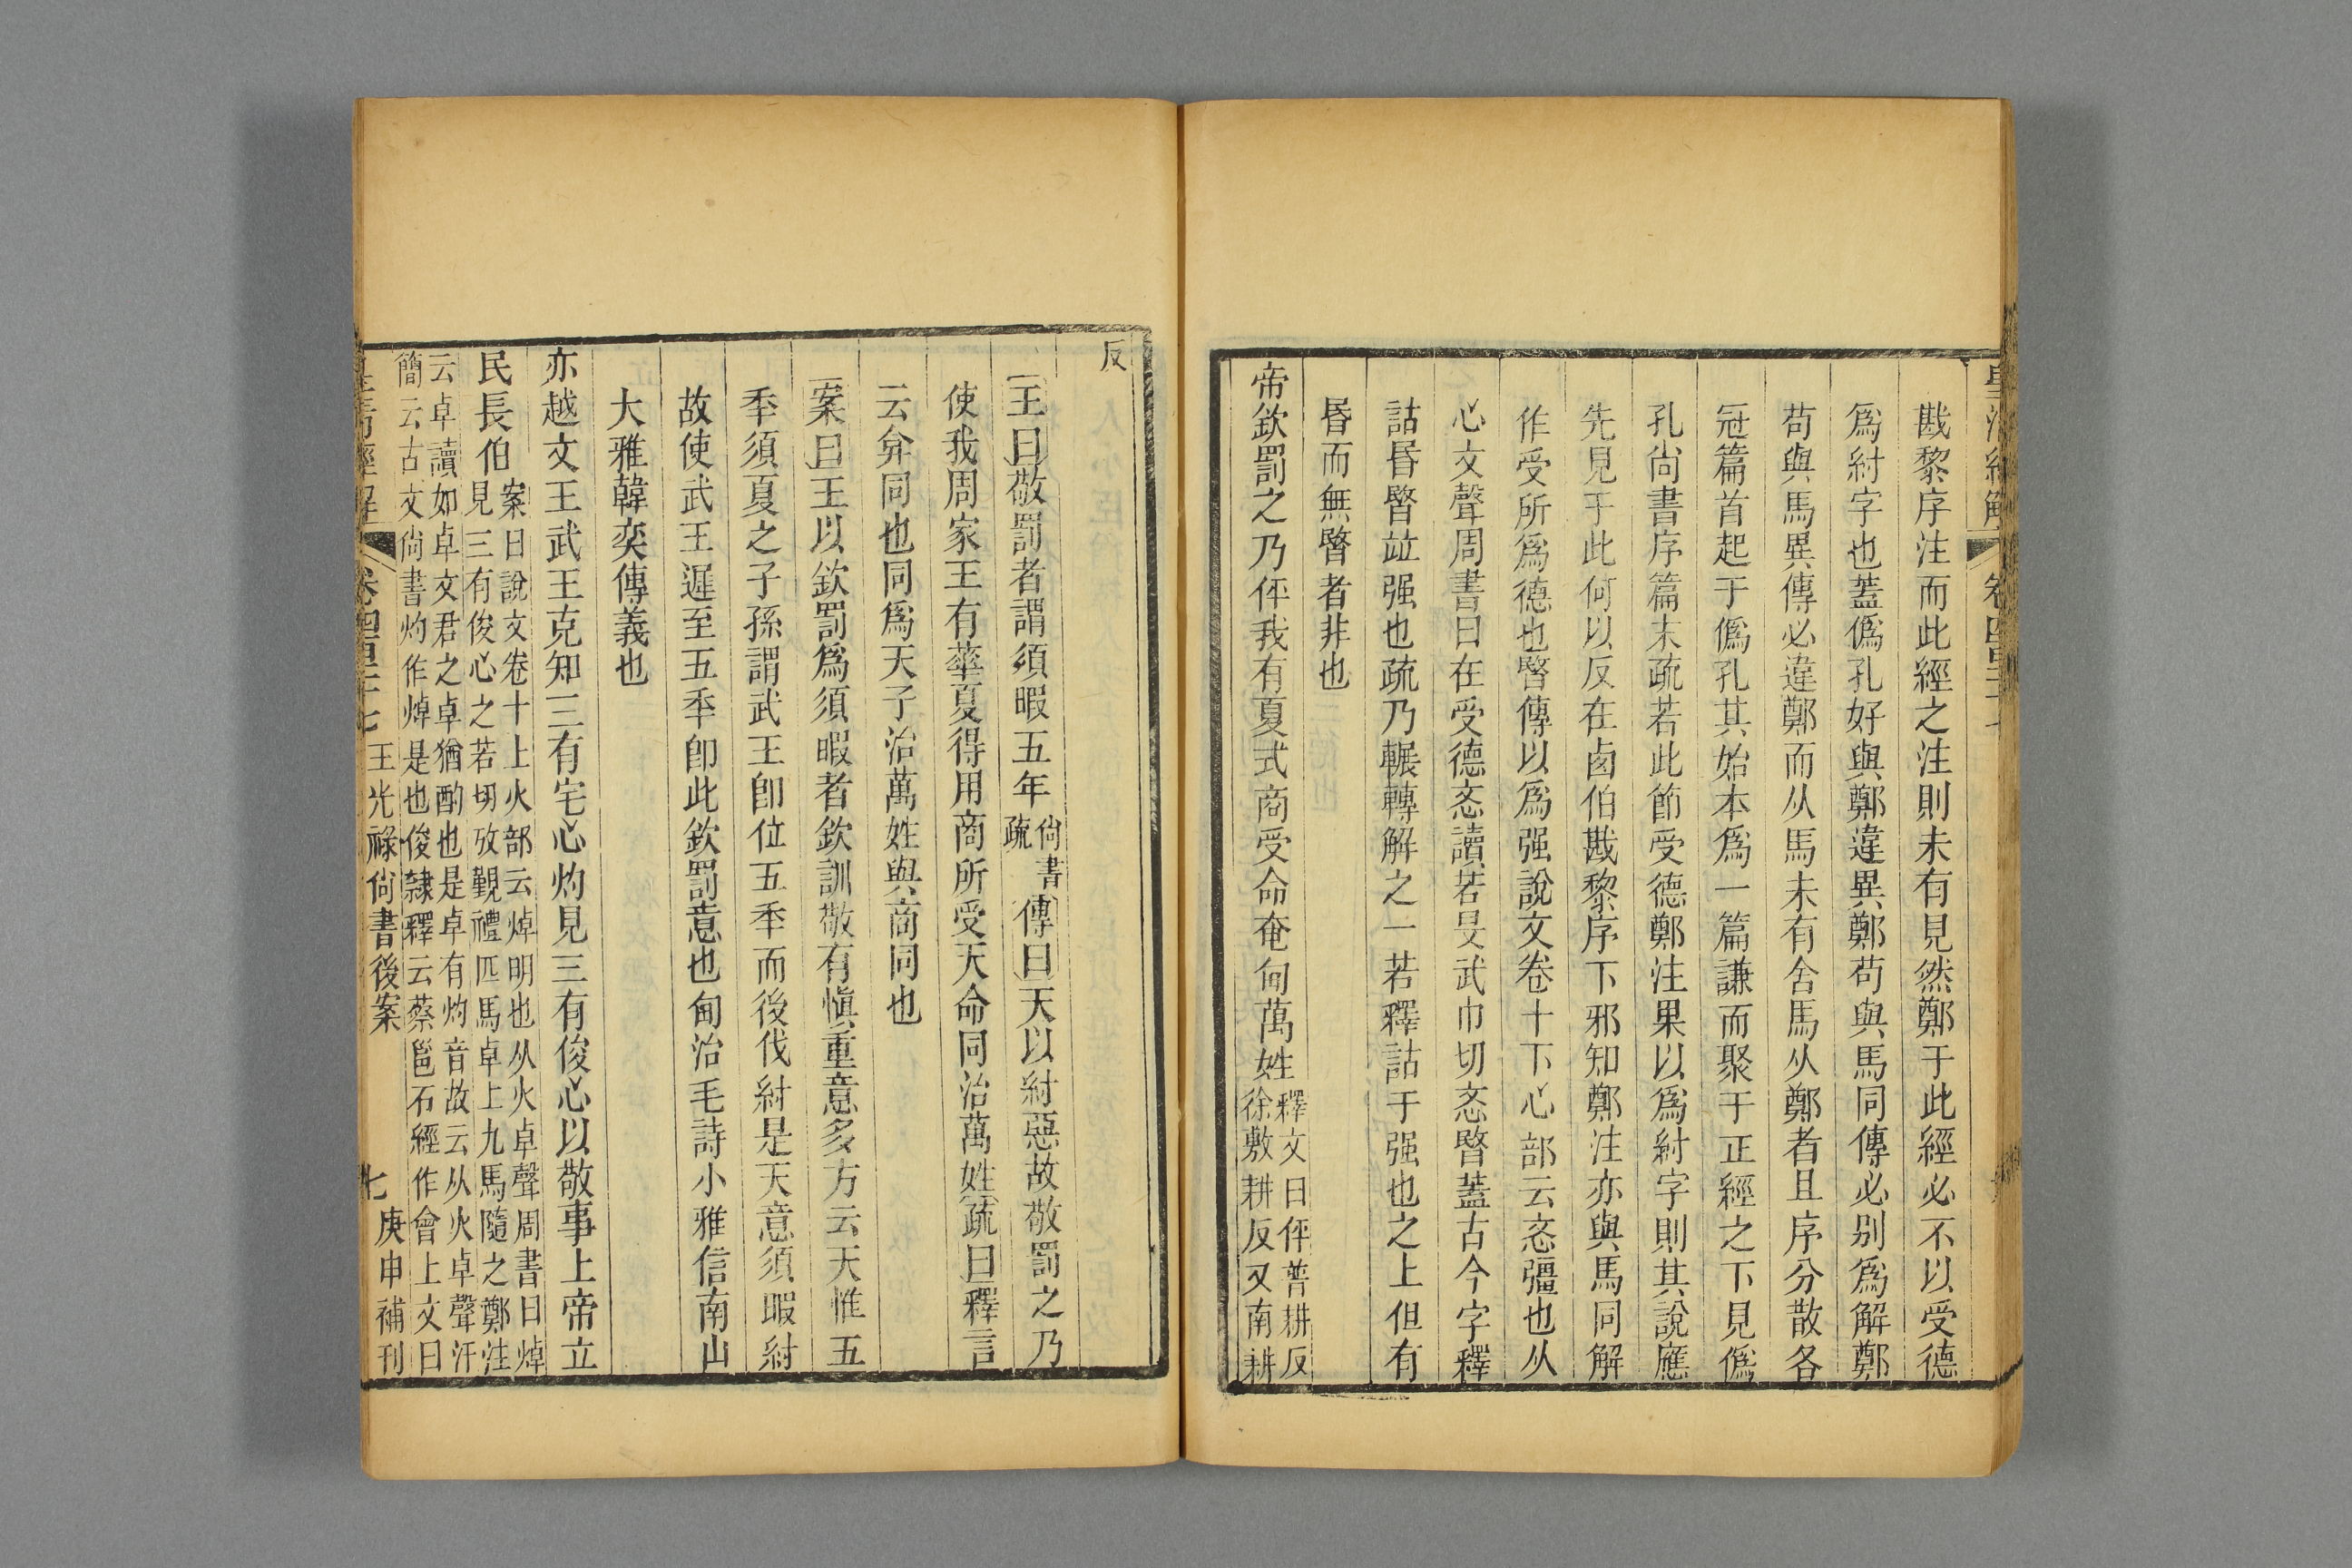 戡黎序注而此經之注則未有見然鄭于此經必不以受德
爲紂字也蓋僞孔好與鄭違異鄭苟與馬同傳必别爲解鄭
苟與馬異傳必違鄭而从馬未有舍馬从鄭者且序分散各
冠篇首起于僞孔其始本爲一篇謙而聚于正經之下見僞
孔尙書序篇末疏若此節受德鄭注果以爲紂字則其說應
先見于此何以反在卥伯戡黎序下邪知鄭注亦與馬同解
作受所爲德也暋傳以爲强說文卷十下心部云忞彊也从
心文聲周書曰在受德忞讀若旻武巾切忞暋蓋古今字釋
詁昬暋竝强也疏乃輾轉解之一若釋詁于强也之上但有
昬而無暋者非也
帝欽罰之乃伻我有夏式商受命奄甸萬姓
釋文曰伻普耕反
徐敷耕反又南耕
反
王曰敬罰者謂須暇五年
尙書
疏
傳曰天以紂惡故敬罰之乃
使我周家王有華夏得用商所受天命同治萬姓疏曰釋言
云弇同也同爲天子治萬姓與商同也
案曰王以欽罰爲須暇者欽訓敬有愼重意多方云天惟五
秊須夏之子孫謂武王卽位五秊而後伐紂是天意須暇紂
故使武王遲至五秊卽此欽罰意也甸治毛詩小雅信南山
大雅韓奕傳義也
亦越文王武王克知三有宅心灼見三有俊心以敬事上帝立
民長伯
案曰說文卷十上火部云焯明也从火卓聲周書曰焯
見三有俊心之若切攷覲禮匹馬卓上九馬隨之鄭注
云卓讀如卓文君之卓猶酌也是卓有灼音故云从火卓聲汗
簡云古文尙書灼作焯是也俊隸釋云蔡邕石經作會上文曰
皇淸經解
卷四百二十七
王光祿尙書後案
七
庚申補刊